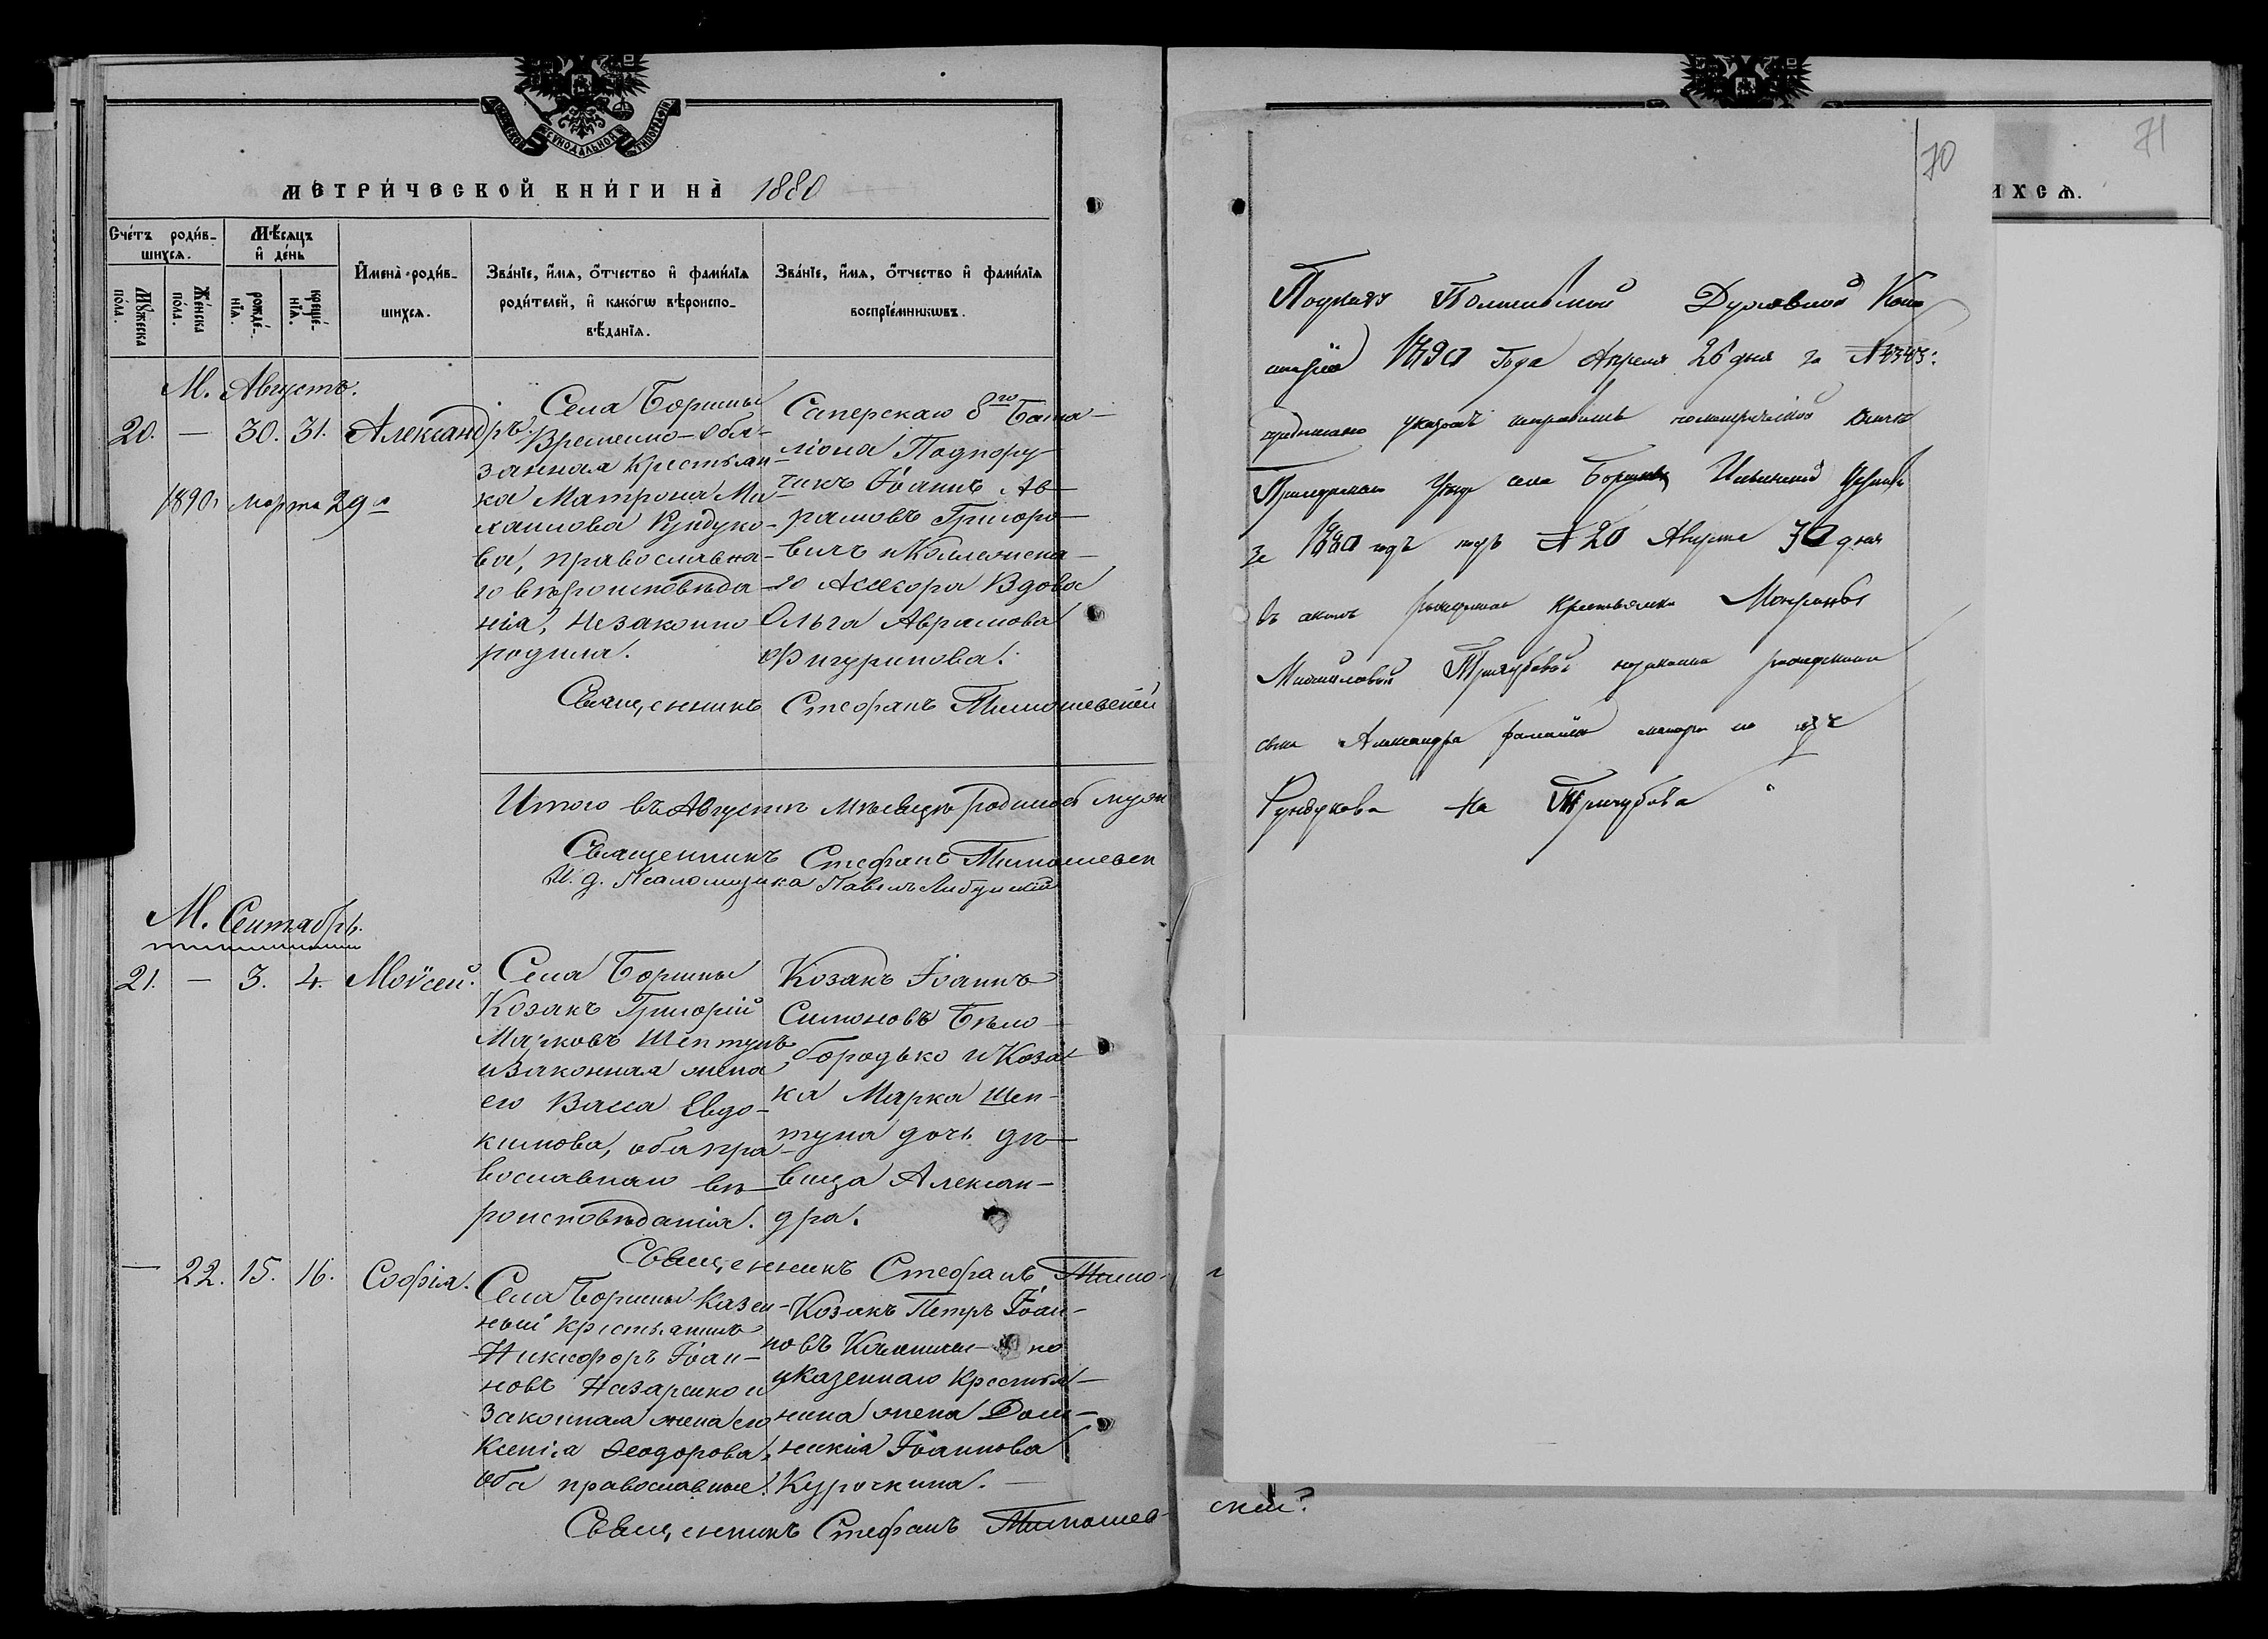 МОСКОВСКОЙ СѴНОДАЛЬНОЙ ТИПОГРАФІИ
МЕТРИ́ЧЕСКОЙ КНИ́ГИ НА̀ 1880
Сче́тъ роди́в-
шихсѧ.
Мꙋ́жеска по́ла.
Же́нска по́ла.
Мѣ́сѧцъ
и҆ де́нь
рожде́-
нїѧ.
креще́-
нїѧ.
И҆мена̀ роди́в-
шихсѧ.
Зва́нїе, и҆́мѧ, ѻ҆́тчество и҆ фами́лїѧ
роди́телей, и҆ како́гѡ вѣроиспо-
вѣ́данїѧ.
Зва́нїе, и҆́мѧ, ѻ҆́тчество и҆ фами́лїѧ
воспрїе́мникѡвъ.
М. Августъ.
20. — 30. 31. Александръ.
1890 г марта 29 д
Села Боршны
Временно-обя-
занная крестьян-
ка Матрона Ми-
хаилова Рундуко-
ва, православна-
го вѣроисповѣда-
нія, незаконно
родила.
Саперскаго 8го Бата-
ліона Подпору-
чикъ Іоаннъ Ав-
рамовъ Григоро-
вичъ и Коллежска-
го Асессора Вдова
Ольга Аврамова
Фигуринова.
Священникъ Стефанъ
Итого въ Августѣ мѣсяцѣ родилось муж
Священникъ Стефанъ
И. д. Псаломщика Павелъ
М. Сентябрь.
21. — 3. 4. Моѵсей.
Села Боршны
Козакъ Григорій
Марковъ Шептунъ
и законная жена
его Васса Евдо-
кимова, оба пра-
вославнаго вѣ-
роисповѣданія.
Козакъ Іоаннъ
Симоновъ Бѣло-
бородько и Коза-
ка Марка Шеп-
туна дочь дѣ-
вица Алексан-
дра.
Священникъ Стефанъ
— 22. 15. 16. Софія.
Села Боршны Казен-
ный крестьянинъ
Никифоръ Іоан-
новъ Назаренко и
законная жена его
Ксенія Ѳеодорова,
оба православные.
Козакъ Петръ Іоан-
новъ
и казеннаго крестья-
нина жена Дом-
никія Іоаннова
Курочкина.
Священникъ Стефанъ
ской
ИХСѦ.
70
71
Духовной Кон
систоріи 1890 года Апреля 26 дня за № 4343:
предписано указомъ исправить
Прилуцкаго уезда села Боршны Ильинской церкви
за 1880 годъ подъ № 20 Августа 30 дня
въ актѣ рожденія крестьянки Матроны
Михайловой Тризубовой незаконно рожденнаго
сына Александра фамилію матери его изъ
Рундукова на Тризубова